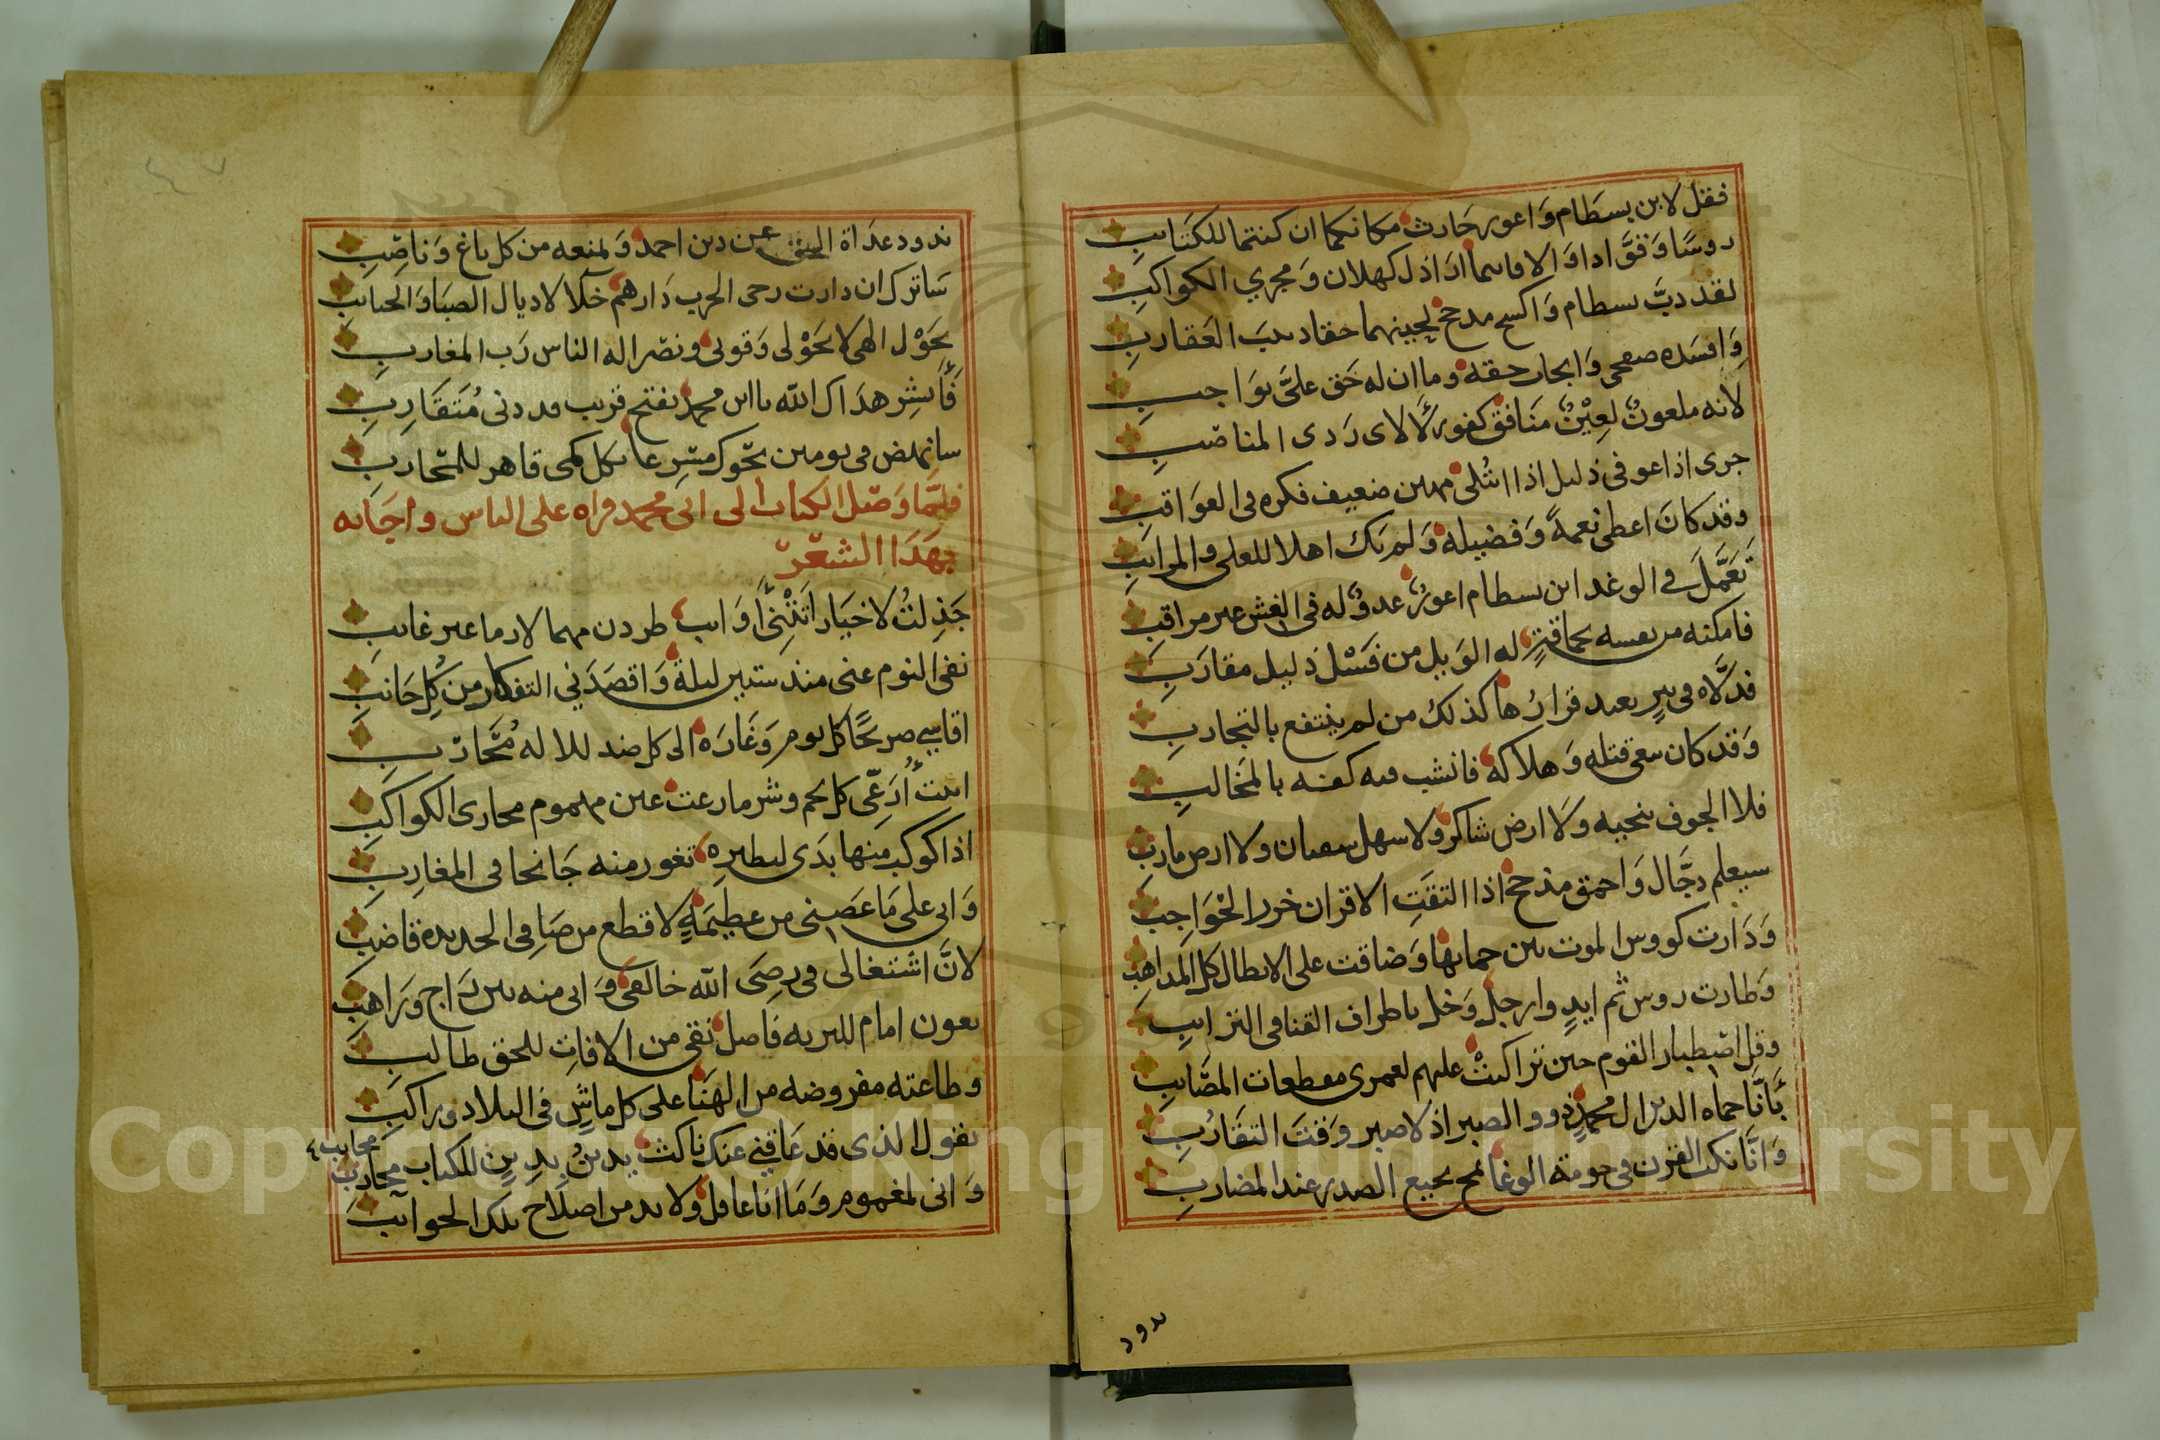 فقل لابن بسطام وَاعور حَارث مكانكما ان كنتما للكتَايبِ
روسًا وَقوَّادا وَالا فانما ادَاذل كهلان وَمجري الكواكبِ
لقد دبَّ بسطام وَاكسح مدحج لحينهما حقا دبيب العَقاربِ
وَافسَده صفحى وَابجاز حقه وما ان له حَق علىَّ بوَاجبِ
لانه ملعونٌ لعِيْنٌ مَنافقٌ كفورٌ لالاى رَدى المناصبِ
جرى اذا عوفى ذليل اذا اتبلى مهين ضعيف فكره فى العوَاقبِ
وقد كانَ اعطى نعمةً وَفضيلة وَلم يَك اهلا للعلى والمراتبِ
تَعَمَّلَ فى الوغد ابن بسطام اعورٌ عدوٌ له فى الغش عير مراقبِ
فامكنه من نفسه بحماقةٍ له الوَيل من فَسْل ذليل مقاربِ
فدلَّاه فى بيرٍ بعيد قرارُها كذلك من لم ينتفع بالتجاربِ
وَقد كان سعى قتله وَهلاكه فانشب فيه كفه بالمخالبِ
فلا الجوف ينجيه وَلا ارض شاكر ولا سهل سعيان ولا ارض ماربِ
سيعلم دجَّال وَاحمق مذحج اذا التقَتِ الاقران خزر الحوَاجبِ
وَدَارت كووس الموت بين حماتها وَضاقت على الابطال كل المذاهبِ
وَطارت روس ثم ايدٍ وارجل وَخل باطراف القنا فى الترايبِ
وقل اصْطبار القوم حين تراكبتْ عليهم لعمرى مفطعات المصَايبِ
بَأنَّا حماه الدين ال محمدٍ ذوو الصبر اذ لا صبر وَقتَ التقَارُبِ
وَانَّا نكب القرن فى حومة الوغا بمج نجيع الصدر عند المضاربِ
ندود
ندود عدَاة الحق عن دين احمد وَلمنعه من كل باغ وَناصبِ
سَاترك ان دارت رحى الحرب دَارهم خلا لاذيال الصبَا وَالجنايبِ
بحَوْل الهى لا بحَوْلى وَقوتى ونصر اله الناس رَب المغاربِ
فَأبشِر هدَاك الله يا ابن محمد بفتح قريب قد دنى مُتَقَاربِ
سانهض فى يومين نحوك مسْرعا بكل كمى قاهر للمحاربِ
فلمَّا وَصَل الكتاب الى ابى محمد قراه على الناس واجَابه
بهَذَا الشعْر
جَذِلتُ لاخبَار اتَتْنِى أَوَايب طردن مهما لازما عير غايبِ
نفى النوم عنى منذ ستين ليلة وَاقصَدَني التفكار من كلِ جَانبِ
اقاسي صريحًا كل يوم وَغَارَه الى كل ضد للاله مُحَاربِ
ابيتُ أُرَعّى كل نجم وشر ما رعت عين مهموم مجارى الكواكبِ
اذا كوكب منها بدَى ليطيره تغور منه جَانحا فى المغاربِ
وَانى على مَا عَضنى من عظيمَةٍ لاقطع من صَافى الحديده قاضبِ
لانَّ اشتغالى فى رضىَ الله خالقى وَانى منه بين رَاج وَرَاهبِ
بعون امام للبريه فاصل نقى من الافات للحق طالبِ
وطاعته مفروضه من الهَنا على كل ماشٍ فى البلاد وراكبِ
بقتول الذى قد عَاقني عنك ناكث يدينُ بدينٍ للكتاب مجَاربِ
مجانب ٤
وَانى لمغموم وَمَا انا غافل ولا بد من اصلاح تلك الجوانبِ
Copyright © King Saud University